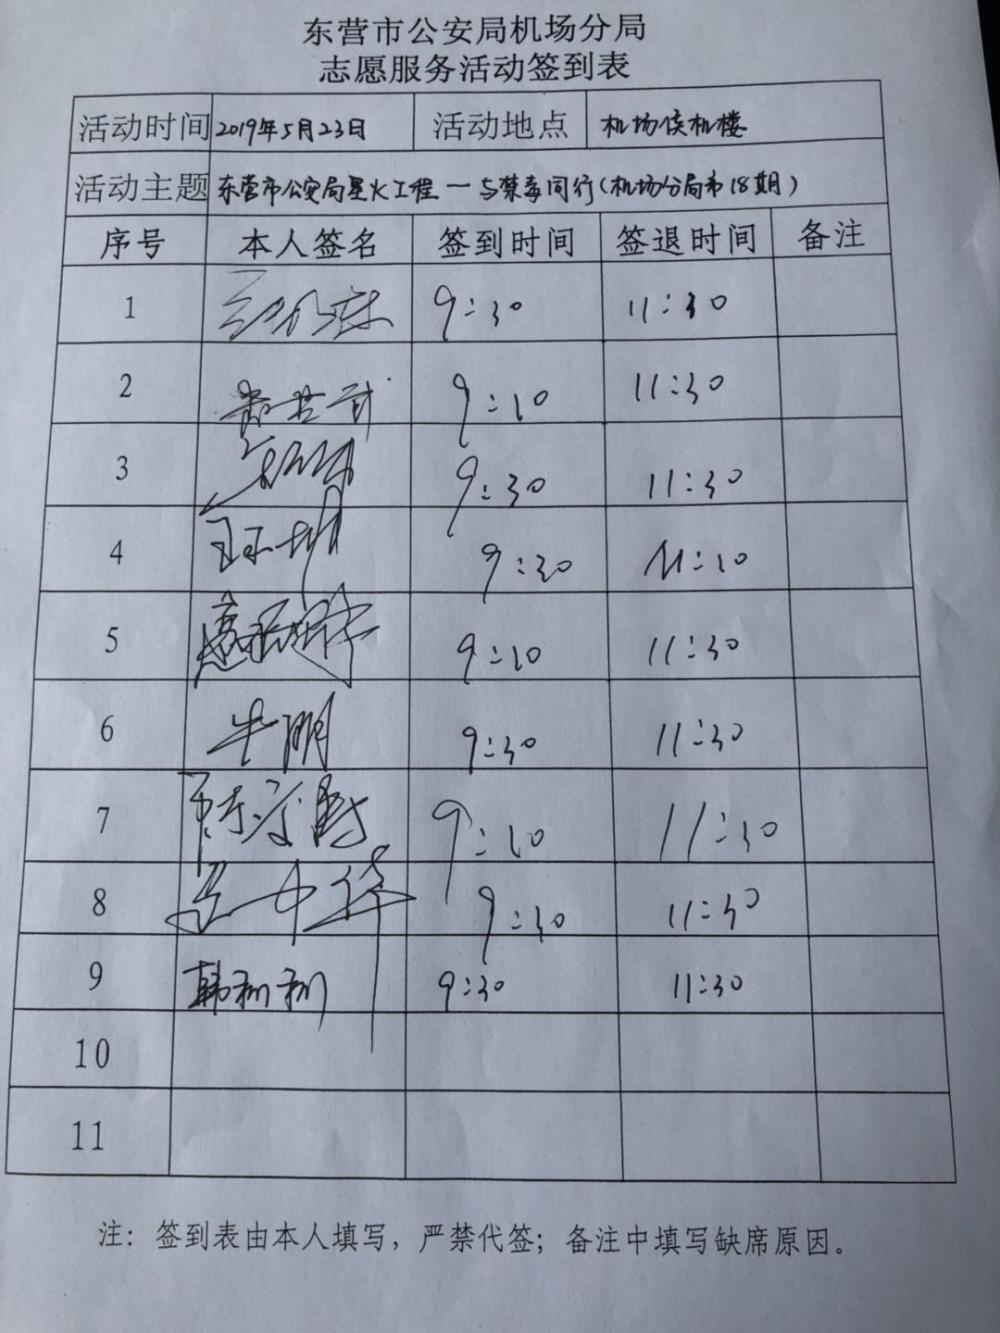 东营市公安局机场分局
志愿服务活动签到表
活动时间 2019年5月23日 活动地点 机场候机楼
活动主题 东营市公安局星火工程一与禁毒同行(机场分局第18期)
序号 本人签名 签到时间 签退时间 备注
1 9:30 11:30
2 9:10 11:30
3 9:30 11:30
4 9:30 11:10
5 9:10 11:30
6 牛朋 9:30 11:30
7 9:10 11:30
8 9:30 11:30
9 韩利利 9:30 11:30
10
11
注：签到表由本人填写，严禁代签；备注中填写缺席原因。